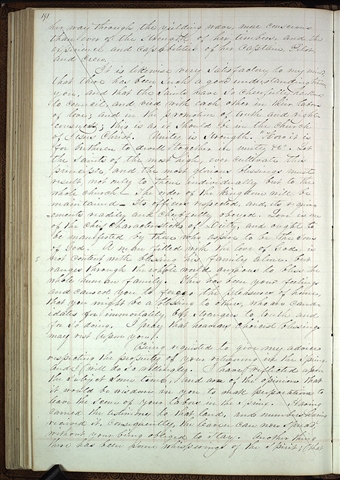 191
her way through the yielding wave, more conscious
than ever of the strength of her timbers, and the
experience and capabilities of her Captain, Pilot
and Crew.
It is likewise very satisfactory to my mind
that there has been such a good understanding
you, and that the Saints have so cheerfully hearkened
to council, and vied with each other in their labor
of love, and in the promotion of truth and right-
eousness; this is as it should be in the Church
of Jesus Christ. Unity is strength. "How
for brethren to dwell together in unity &c." Let
the Saints of the most high, ever cultivate this
principle, and the most glorious blessings must
result not only to them individually but to the
whole church. The order of the Kingdom will be
maintained. Its officers respected, and its require-
ments readily and cheerfully obeyed. Love is one
of the chief characteristics of Deity, and ought to
be manifested by those who aspire to be the Sons
of God. A man filled with the love of God, is
not content with blessing his family alone but
ranges through the whole world, anxious to bless the
whole human family. This has been your feelings
and caused you to forego the pleasures of home,
that you might be a blessing to others, who are candi-
dates for immortality but strangers to truth and
for so doing, I pray that heaven's choicest blessings
may rest upon you.
Being requested to give my advice
respecting the propriety of your returning in the Spring,
and I will do so willingly. I have reflected upon
the subject some time, and am of the opinion that
it would be wisdom in you to make preparations to
leave the scene of your labors in the spring. Having
carried the testimony to that land, and numbers having
received it, consequently the leaven can now spread
without your being obliged to stay. Another thing
there has been some whisperings of the Spirit, that